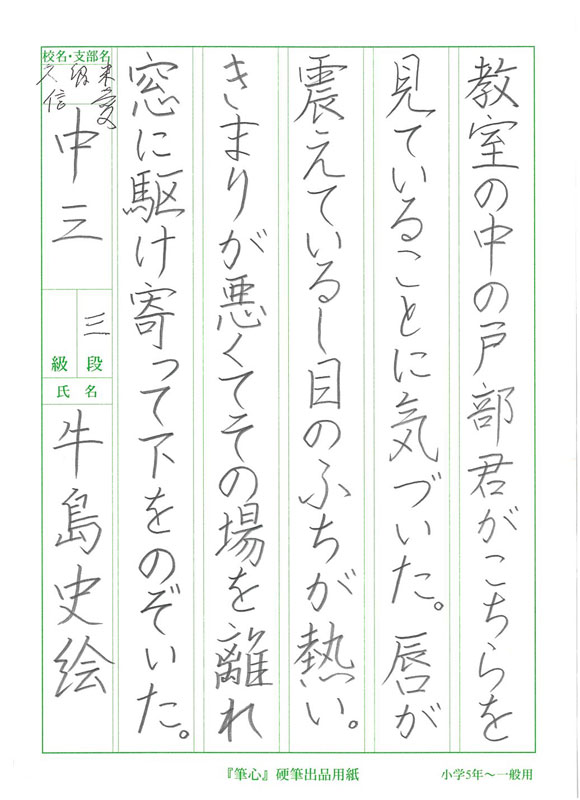 教室の中の戸部君がこちらを
見ていることに気づいた。唇が
震えているし目のふちが熱い。
きまりが悪くてその場を離れ
窓に駆け寄って下をのぞいた。
校名・支部名
久留米
信愛
中三
三段
級
氏名
牛島史絵
『筆心』硬筆出品用紙
小学5年～一般用